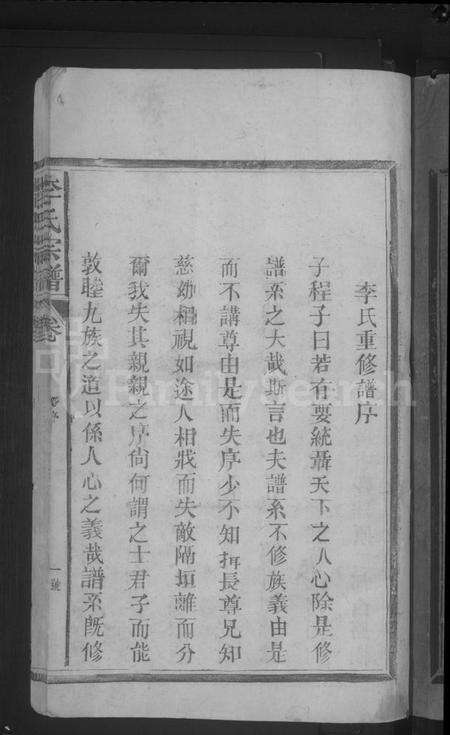 李氏重修譜序
子程子曰若有要統聶天下之人心除是修
譜系之大哉斯言也夫譜系不修族義由是
而不講尊由是而失序少不知 長尊兄知
慈幼相視如途人相戕而失敵隔垣離而分
爾我失其親親之序尙何謂之士君子而能
敦睦九族之道以係人心之義哉譜系既修
李氏宗譜
卷
一號
FamilySearch